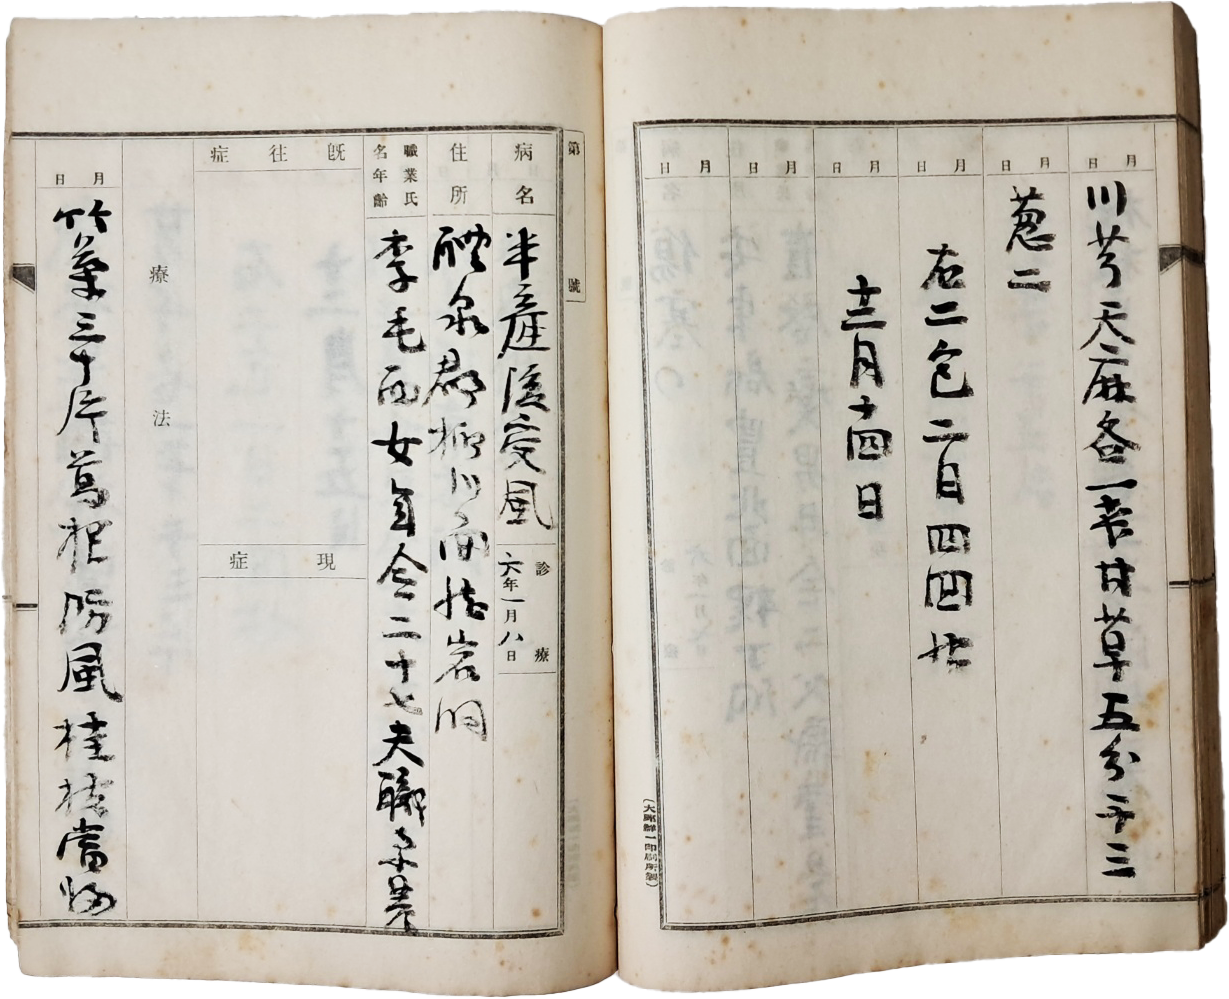 月 日
川芎天麻各一戔甘草五分干三
月 日
葱二
月 日
右二包二日四四
月 日
十二月十四日
月 日
月 日
(大邱鮮一印刷所製)
第 號
病名
半産後受風
診療
六年一月八日
住所
醴泉郡柳川面
職業氏名年齡
李毛面女年今二十七夫職業農
既往症
現症
療法
月 日
竹葉三十片葛根防風桂枝當歸